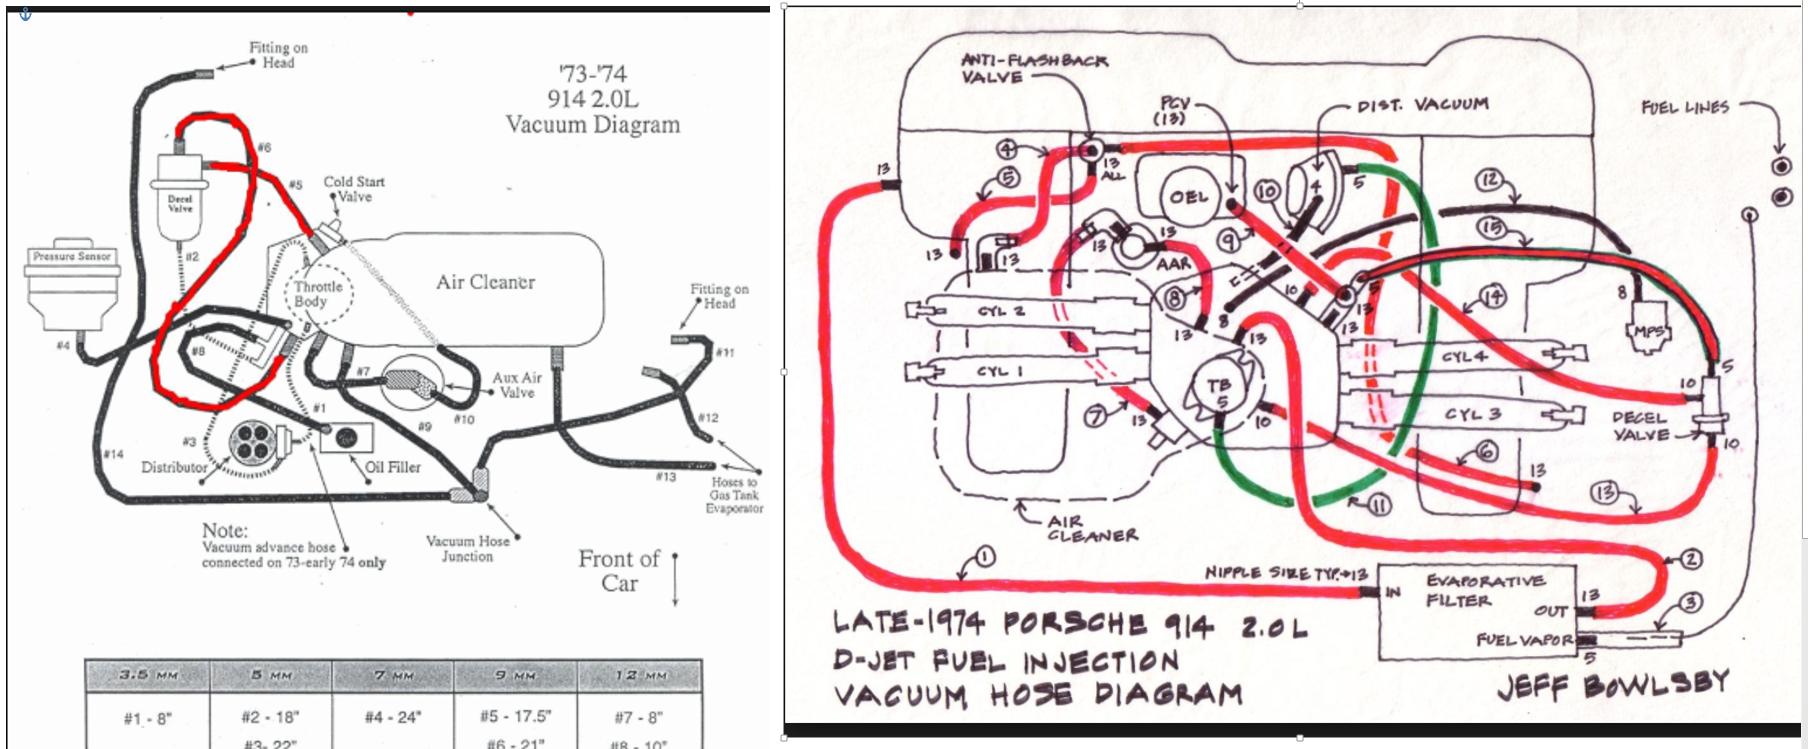 Fitting on
Head
'73-'74
914 2.0L
Vacuum Diagram
#6
#5
Cold Start
Valve
Decel
Valve
#2
Pressure Sensor
Throttle
Body
Air Cleaner
Fitting on
Head
#4
#8
#7
#11
Aux Air
Valve
#10
#1
#9
#12
#3
#14
Distributor
Oil Filler
#13
Hoses to
Gas Tank
Evaporator
Note:
Vacuum advance hose
connected on 73-early 74 only
Vacuum Hose
Junction
Front of
Car
3.5 MM
5 MM
7 MM
9 MM
12 MM
#1 - 8"
#2 - 18"
#4 - 24"
#5 - 17.5"
#7 - 8"
#3- 22"
#6 - 21"
#8 - 10"
ANTI-FLASHBACK
VALVE
PCV
(13)
DIST. VACUUM
FUEL LINES
4
13
ALL
5
13
OEL
10
4
5
12
9
15
13
13
13
13
AAR
8
13
8
10
5
13
13
14
8
MPS
CYL 2
CYL 1
CYL 4
CYL 3
TB
5
10
5
10
DECEL
VALVE
10
7
13
6
13
13
11
AIR
CLEANER
1
NIPPLE SIZE TYP.→13
IN
EVAPORATIVE
FILTER
OUT
13
2
3
FUEL VAPOR
5
LATE-1974 PORSCHE 914 2.0L
D-JET FUEL INJECTION
VACUUM HOSE DIAGRAM
JEFF BOWLSBY